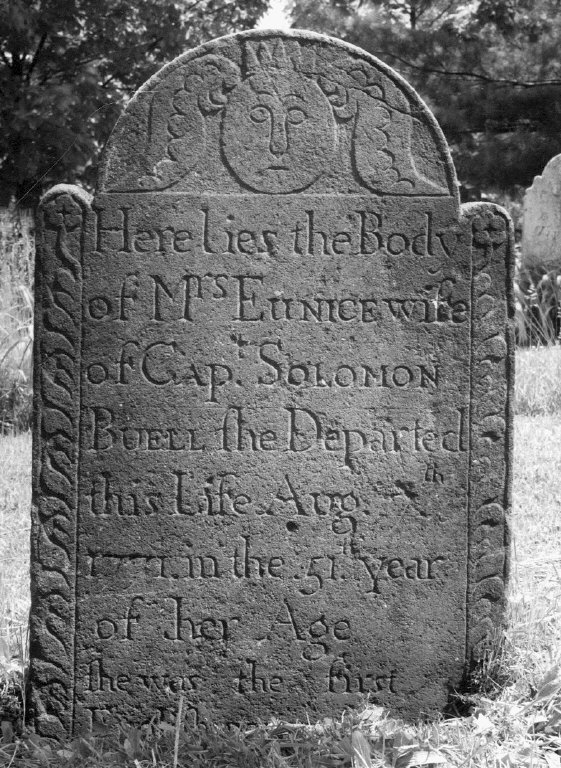 Here lies the Body
of Mrs EUNICE wife
of CAPt. SOLOMON
BUELL ſhe Departed
this Life Aug.
1771. in the 51st year
of her Age
ſhe was the first